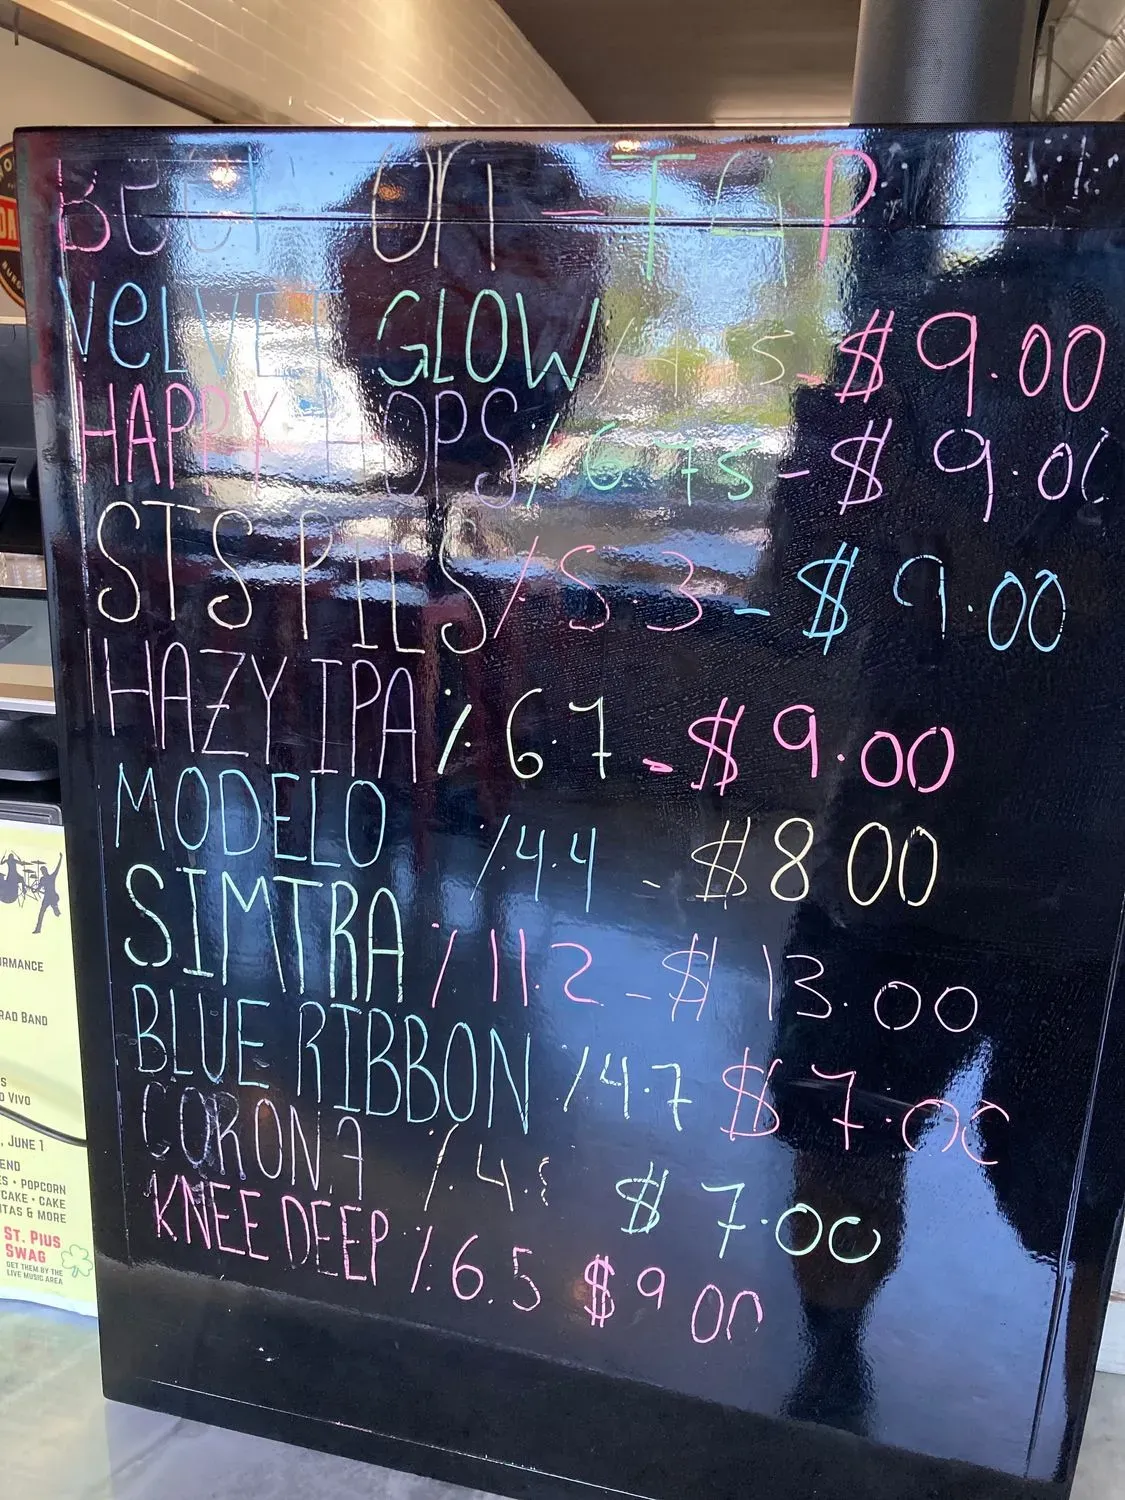 BEER ON - TAP
VELVET GLOW / 4.5 - $9.00
HAPPY HOPS / 6.75 - $9.00
STS PILS / 5.3 - $9.00
HAZY IPA % 6.7 - $9.00
MODELO % 4.4 - $8 00
SIMTRA % 11.2 - $13.00
BLUE RIBBON / 4.7 $7.00
CORONA % 4. $7.00
KNEE DEEP % 6.5 $9 00
RMANCE
RAD BAND
VIVO
, JUNE 1
END
ES • POPCORN
CAKE • CAKE
ITAS & MORE
ST. PIUS
SWAG
GET THEM BY THE
LIVE MUSIC AREA